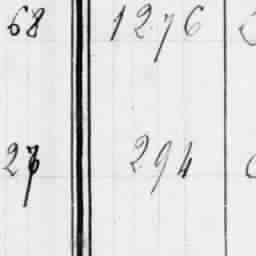 68 1276
27 294